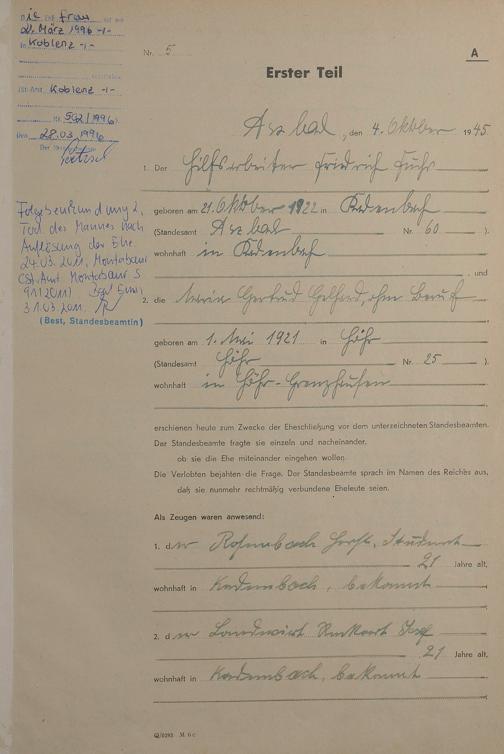 Die Frau
21. März 1996 -/-
in Koblenz -/-
St. Amt Koblenz -/-
Nr. 502/1996
Den 28.03.1996
Folgebeurkundung 2,
Tod des Mannes nach
Auflösung der Ehe.
24.03.2011, Montabaur
(St.Amt Montabaur S
91/2011)
31.03.2011
(Best, Standesbeamtin)
Nr. 5
A
Erster Teil
Arzbach, den 4. Oktober 1945
1. Der Hilfsarbeiter Friedrich Fuhr
geboren am 21. Oktober 1922 in Kadenbach
(Standesamt Arzbach Nr. 60 ).
wohnhaft in Kadenbach
, und
2. die Maria Gertrud Gelhard, ohne Beruf
geboren am 1. Mai 1921 in Höhr
(Standesamt Höhr Nr. 25 ).
wohnhaft in Höhr-Grenzhausen
erschienen heute zum Zwecke der Eheschließung vor dem unterzeichneten Standesbeamten.
Der Standesbeamte fragte sie einzeln und nacheinander,
ob sie die Ehe miteinander eingehen wollen.
Die Verlobten bejahten die Frage. Der Standesbeamte sprach im Namen des Reiches aus,
daß sie nunmehr rechtmäßig verbundene Eheleute seien.
Als Zeugen waren anwesend:
1. der Student
21 Jahre alt,
wohnhaft in Kadenbach, bekannt
2. der Landwirt
21 Jahre alt,
wohnhaft in Kadenbach, bekannt